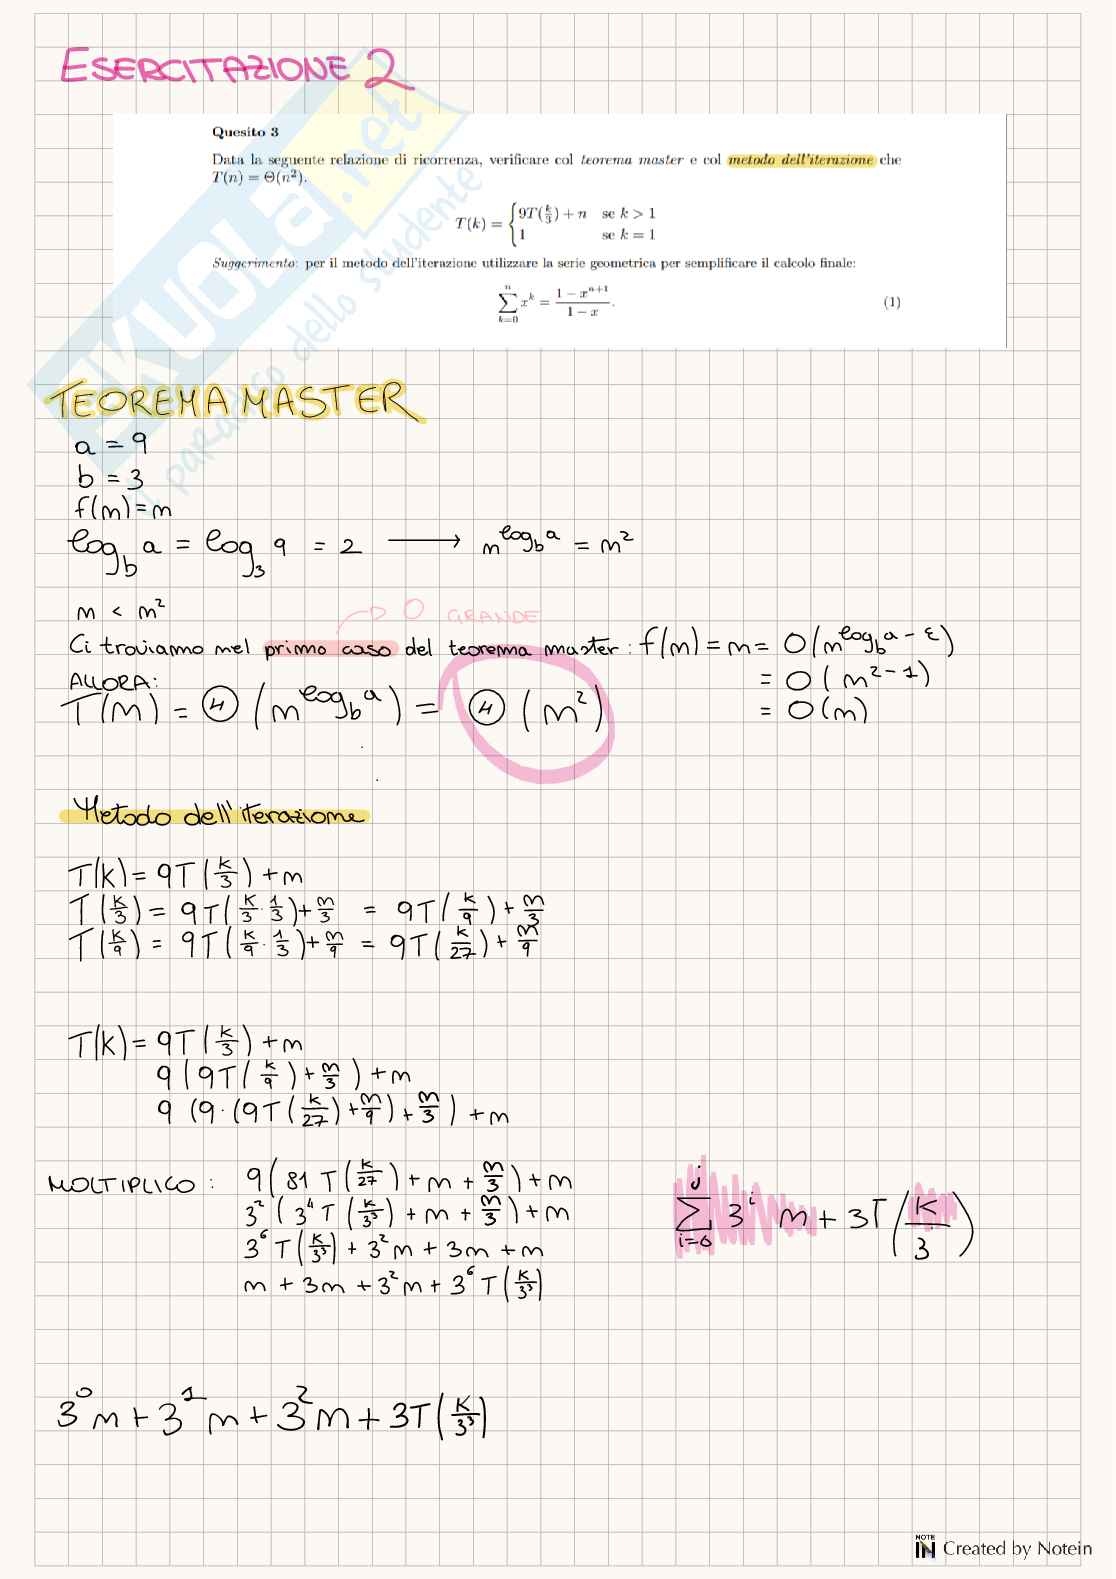 ESERCITAZIONE 2
Quesito 3
Data la seguente relazione di ricorrenza, verificare col teorema master e col metodo dell'iterazione che
T(n) = Θ(n²).
T(k) = { 9T(k/3) + n se k > 1
1 se k = 1
Suggerimento: per il metodo dell'iterazione utilizzare la serie geometrica per semplificare il calcolo finale:
∑_{k=0}^{n} x^k = (1 − x^{n+1})/(1 − x). (1)
SKUOLA.net
il paradiso dello studente
TEOREMA MASTER
a = 9
b = 3
f(n) = n
log_b a = log_3 9 = 2 → n^{log_b a} = n²
n < n²
→ O GRANDE
Ci troviamo nel primo caso del teorema master: f(n) = n = O(n^{log_b a − ε})
= O(n^{2−1})
= O(n)
ALLORA:
T(n) = Θ(n^{log_b a}) = Θ(n²)
Metodo dell'iterazione
T(k) = 9T(k/3) + n
T(k/3) = 9T(k/3 · 1/3) + n/3 = 9T(k/9) + n/3
T(k/9) = 9T(k/9 · 1/3) + n/9 = 9T(k/27) + n/9
T(k) = 9T(k/3) + n
9(9T(k/9) + n/3) + n
9(9·(9T(k/27) + n/9) + n/3) + n
MOLTIPLICO: 9(81T(k/27) + n + n/3) + n
3²(3⁴T(k/3³) + n + n/3) + n
3⁶T(k/3³) + 3²n + 3n + n
n + 3n + 3²n + 3⁶T(k/3³)
∑_{i=0}^{j} 3^i n + 3T(k/3)
3⁰n + 3¹n + 3²n + 3T(k/3³)
NOTE IN Created by Notein